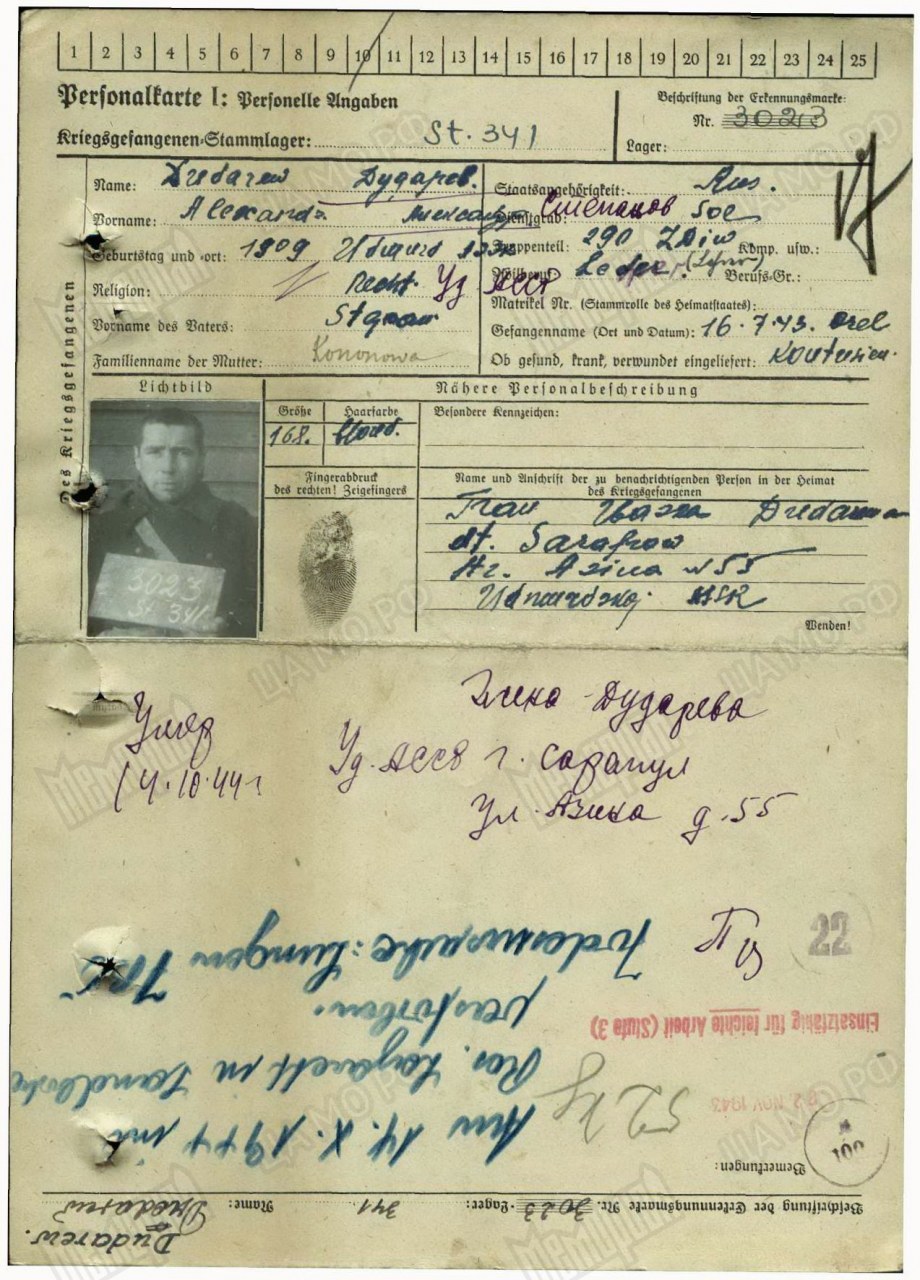 1 2 3 4 5 6 7 8 9 10 11 12 13 14 15 16 17 18 19 20 21 22 23 24 25
Personalkarte I: Personelle Angaben
Beschriftung der Erkennungsmarke:
Nr. 3023
Kriegsgefangenen-Stammlager: St. 341
Lager:
Des Kriegsgefangenen
Name: Dudarew Дударев.
Vorname: Alexandr Александр Степанов
Geburtstag und -ort: 1909
Religion: Уд АССР
Vorname des Vaters: Stepan
Familienname der Mutter: Kononowa
Staatsangehörigkeit: Rus.
Dienstgrad: Sol
Truppenteil: 290 Komp. usw.:
Zivilberuf: Berufs-Gr.:
Matrikel Nr. (Stammrolle des Heimatstaates):
Gefangennahme (Ort und Datum): 16.7.43. Orel
Ob gesund, krank, verwundet eingeliefert: Kontusion.
Lichtbild
Nähere Personalbeschreibung
Größe
Haarfarbe
Besondere Kennzeichen:
168. blond.
3023
St 341
Fingerabdruck
des rechten! Zeigefingers
Name und Anschrift der zu benachrichtigenden Person in der Heimat
des Kriegsgefangenen
Frau
Sarapow
Str. Asina № 55
Wenden!
Умер
14.10.44 г
Елена Дударева
Уд. АССР г. Сарапул
ул. Азина д. 55
22
Todesursache: Lungen Tbc
verstorben.
Einsatzfähig für leichte Arbeit (Stufe 3)
Res. Lazarett in
Am 14.X.1944 im
52 kg
2. NOV 1943
100
Bemerkungen:
Beschriftung der Erkennungsmarke Nr. 3023 Lager: 341 Name:
Dudarew.
ЦАМО РФ
Мемориал